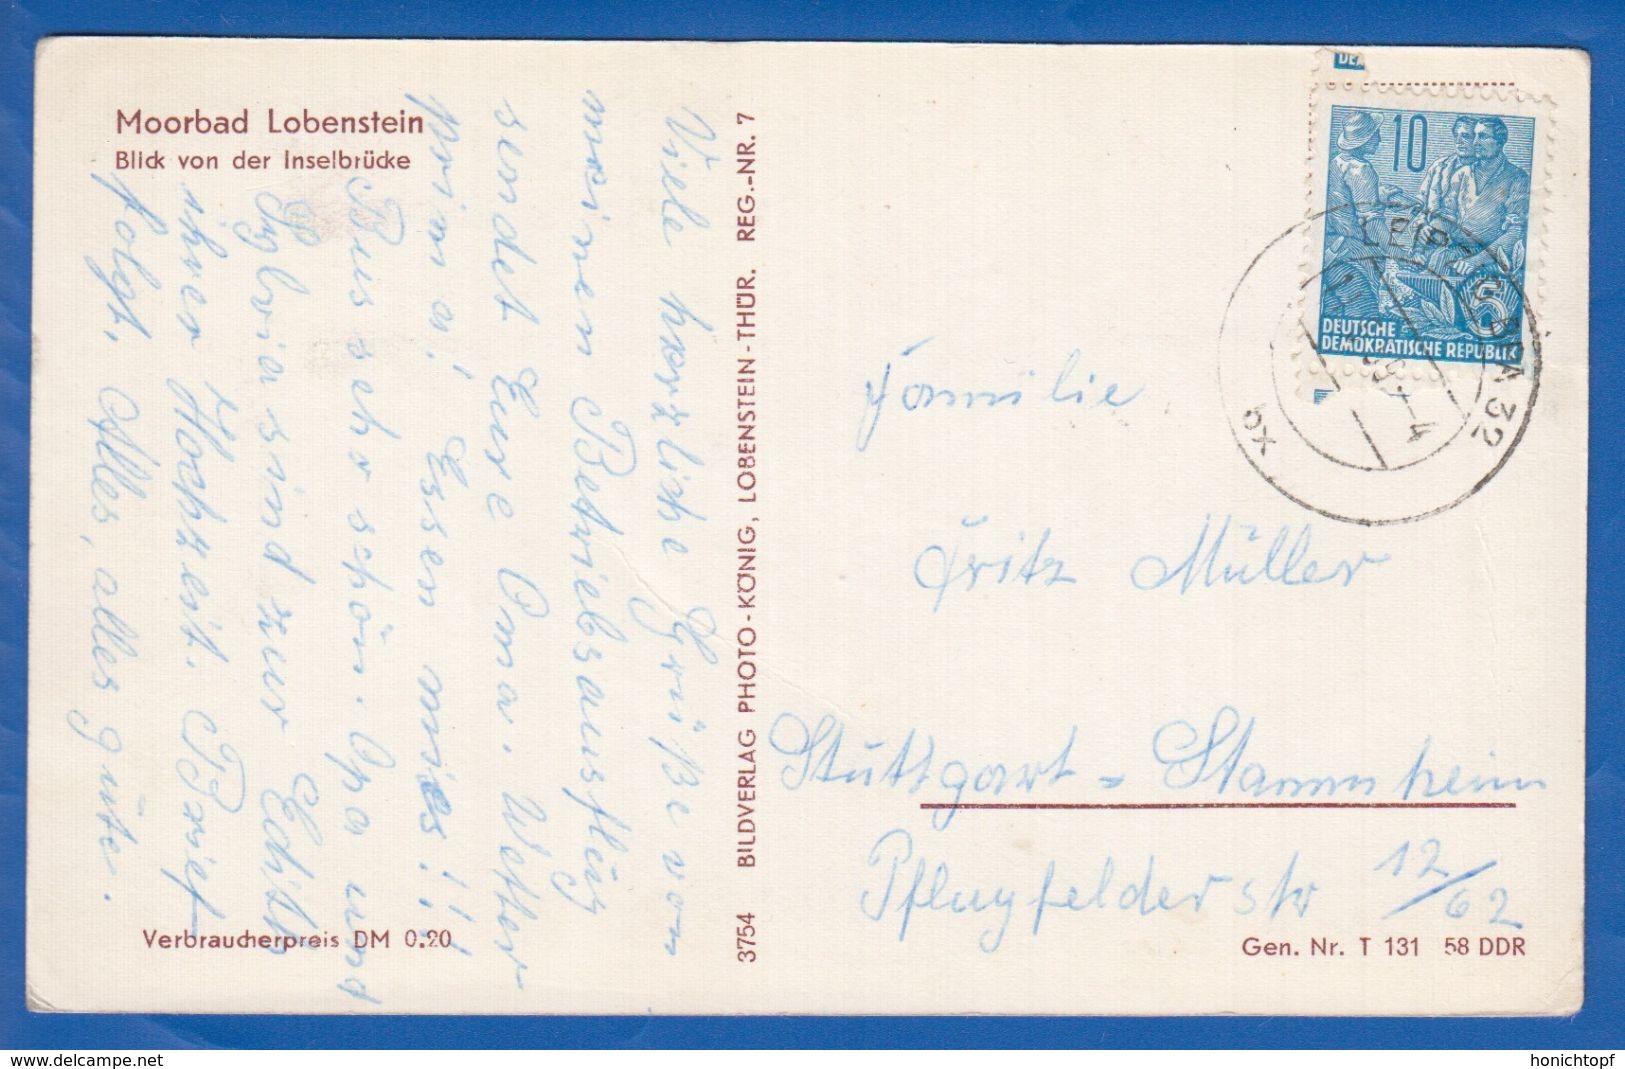 Moorbad Lobenstein
Blick von der Inselbrücke
Viele herzliche Grüße von
meinen Betriebsausflug
sendet Eure Oma. Wetter
prima! Essen mies!!!
Bus sehr schön. Opa und
Sylvia sind zur Edith
ihrer Hochzeit. Brief
folgt. Alles, alles gute.
Verbraucherpreis DM 0.20
3754 BILDVERLAG PHOTO-KÖNIG, LOBENSTEIN-THÜR. REG.-NR. 7
DEUTSCHE
DEMOKRATISCHE REPUBLIK
10
5
32
bx
Familie
Fritz Müller
Stuttgart-Stammheim
Pflugfelderstr 12/62
Gen. Nr. T 131 58 DDR
delcampe.net
honichtopf